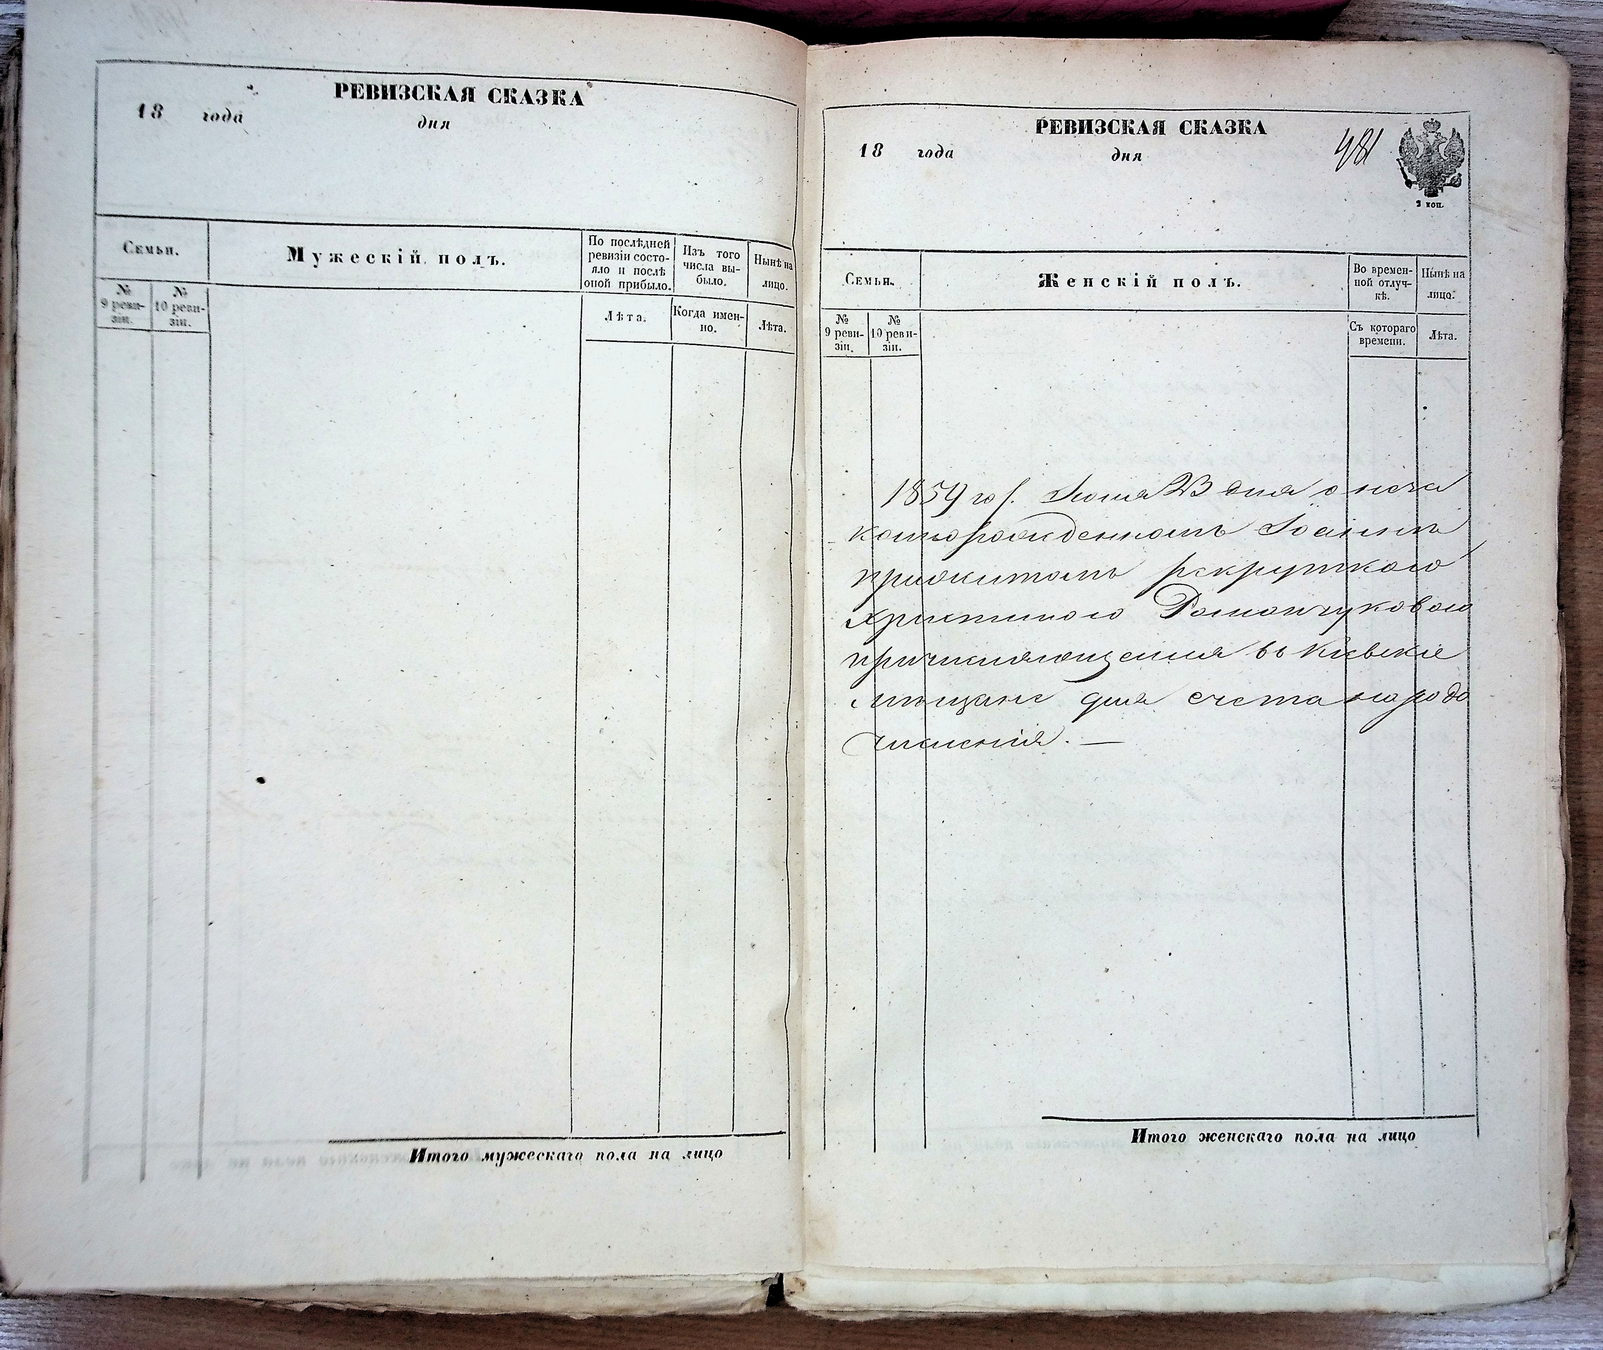 РЕВИЗСКАЯ СКАЗКА
18 года дня
Семьи.
Мужескій полъ.
По послѣдней
ревизіи состо-
яло и послѣ
оной прибыло.
Изъ того
числа вы-
было.
Нынѣ на
лицо.
№
9 реви-
зіи.
№
10 реви-
зіи.
Лѣта.
Когда имен-
но.
Лѣта.
Итого мужескаго пола на лицо
РЕВИЗСКАЯ СКАЗКА
18 года дня
481
2 коп.
Семьи.
Женскій полъ.
Во времен-
ной отлуч-
кѣ.
Нынѣ на
лицо.
№
9 реви-
зіи.
№
10 реви-
зіи.
Съ котораго
времени.
Лѣта.
1859 го Іюня 23 дня о неза
коннорожденномъ Іоаннѣ
прижитомъ рекруткою
Христиною Романчуковою
причисляющемся въ Кіевскіе
мѣщане для счета народо
численія. —
Итого женскаго пола на лицо